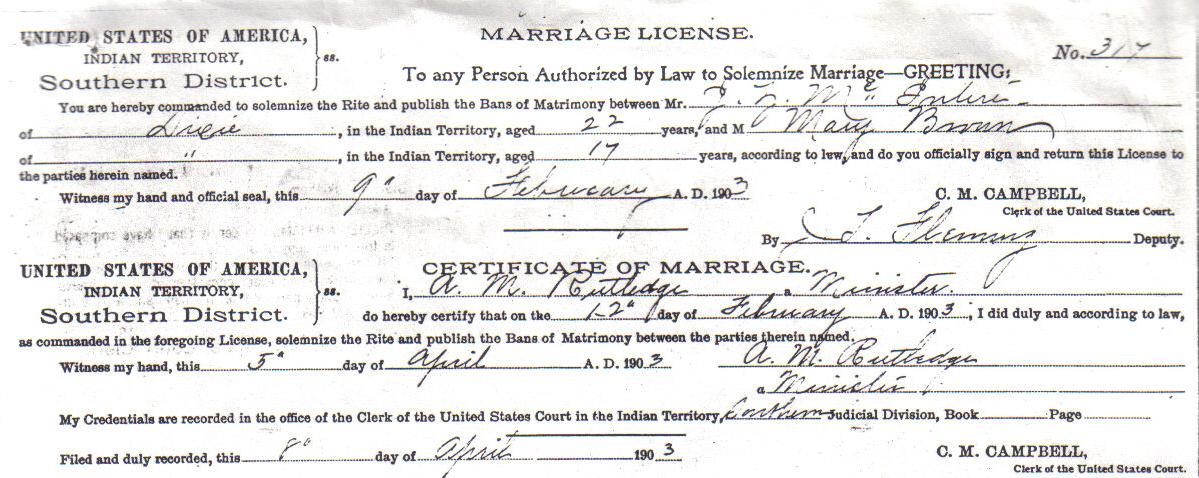 UNITED STATES OF AMERICA,
INDIAN TERRITORY,
Southern District.
ss.
MARRIAGE LICENSE.
No. 317
To any Person Authorized by Law to Solemnize Marriage—GREETING:
You are hereby commanded to solemnize the Rite and publish the Bans of Matrimony between Mr.
of Dixie, in the Indian Territory, aged 22 years, and M Mary Brown
of ", in the Indian Territory, aged 17 years, according to law, and do you officially sign and return this License to
the parties herein named.
Witness my hand and official seal, this 9" day of February A. D. 1903
C. M. CAMPBELL,
Clerk of the United States Court.
By Fleming Deputy.
UNITED STATES OF AMERICA,
INDIAN TERRITORY,
Southern District.
ss.
CERTIFICATE OF MARRIAGE.
I, A. M. Rutledge a Minister.
do hereby certify that on the 12" day of February A. D. 1903, I did duly and according to law,
as commanded in the foregoing License, solemnize the Rite and publish the Bans of Matrimony between the parties therein named.
Witness my hand, this 5" day of April A. D. 1903 A. M. Rutledge
a Minister
My Credentials are recorded in the office of the Clerk of the United States Court in the Indian Territory, Southern Judicial Division, Book Page
Filed and duly recorded, this 8" day of April 1903
C. M. CAMPBELL,
Clerk of the United States Court.